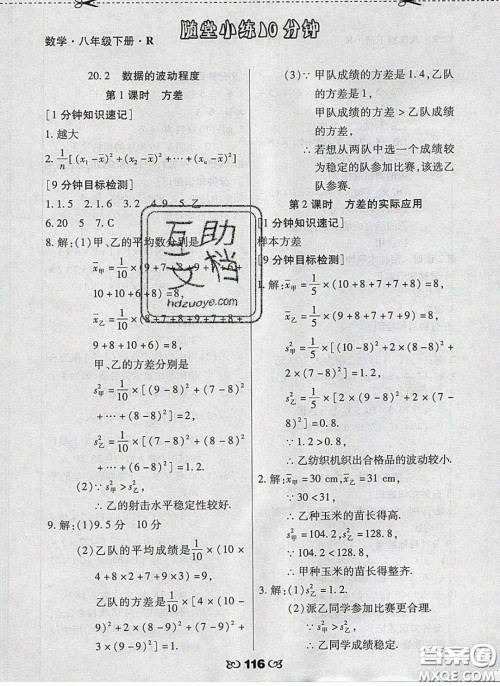 数学·八年级下册·R
随堂小练10分钟
20.2 数据的波动程度
第1课时 方差
[1分钟知识速记]
1. 越大
2. 1/n[(x₁-x̄)²+(x₂-x̄)²+…+(xₙ-x̄)²]
[9分钟目标检测]
1. 1.5 2. 1.6 3. 2 4. 9 5. 乙
6. 20 5 7. C
8. 解:(1)甲、乙的平均数分别是
x̄甲=1/10×(9+7+8+9+
10+10+8+6)=8,
x̄乙=1/10×(8+7+8+9+7+8+
9+8+10+6)=8,
甲、乙的方差分别是
s²甲=1/10×[(9-8)²+(7-8)²
+…+(6-8)²]=2,
s²乙=1/10×[(7-8)²+(8-8)²
+…+(8-8)²]=1.2,
(2)∵s²甲>s²乙,
∴乙的射击水平稳定性较好.
9. 解:(1)9.5分 10分
(2)乙队的平均成绩是1/10×(10×
4+8×2+7+9×3)=9,
乙队的方差是1/10×[4×(10-9)²
+2×(8-9)²+(7-9)²+3×
(9-9)²]=1.
(3)∵甲队成绩的方差是1.4,乙队
的方差是1,
∴甲队成绩的方差大于乙队成绩
的方差,
∴若想从两队中选一个成绩较
为稳定的队参加比赛,该选乙
队.
第2课时 方差的实际应用
[1分钟知识速记]
样本方差
[9分钟目标检测]
1. 解:x̄甲=1/5×(10+8+7+7+8)=8,
x̄乙=1/5×(9+8+7+7+9)=8,
s²甲=1/5×[(10-8)²+2×(8-8)²
+2×(7-8)²]=1.2,
s²乙=1/5×[(8-8)²+2×(7-
8)²+2×(9-8)²]=0.8.
∵1.2>0.8,
∴乙纺织机织出合格品的波动较小.
2. 解:∵x̄甲=30 cm,x̄乙=31 cm,
∵30<31,
∴乙种玉米的苗长得高.
∵s²甲=104.2,s²乙=128.8,
∵104.2<128.8,
∴甲种玉米的苗长得整齐.
3. 解:(1)s²乙=1.2.
(2)派乙同学参加比赛更合理.
∵s²甲>s²乙,
∴乙同学成绩稳定.
116
互助文档
hdzuoye.com
答案圈
MXQE.COM